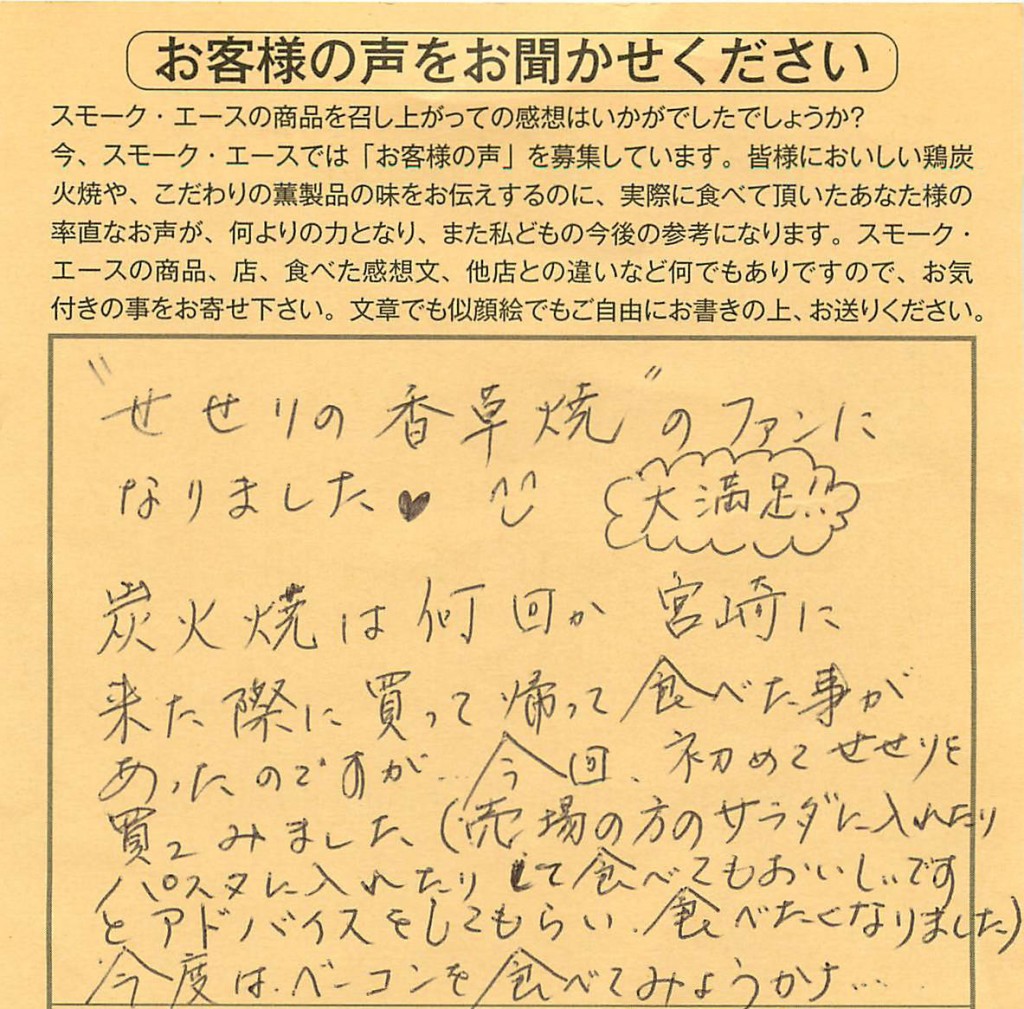 お客様の声をお聞かせください
スモーク・エースの商品を召し上がっての感想はいかがでしたでしょうか?
今、スモーク・エースでは「お客様の声」を募集しています。皆様においしい鶏炭
火焼や、こだわりの薫製品の味をお伝えするのに、実際に食べて頂いたあなた様の
率直なお声が、何よりの力となり、また私どもの今後の参考になります。スモーク・
エースの商品、店、食べた感想文、他店との違いなど何でもありですので、お気
付きの事をお寄せ下さい。文章でも似顔絵でもご自由にお書きの上、お送りください。
"せせりの香草焼"のファンに
なりました♥
大満足!!
炭火焼は何回か宮崎に
来た際に買って帰って食べた事が
あったのですが…今回、初めてせせりを
買ってみました(売場の方のサラダに入れたり
パスタに入れたりして食べてもおいしいです
とアドバイスをしてもらい、食べたくなりました)
今度は、ベーコンを食べてみようかナ…